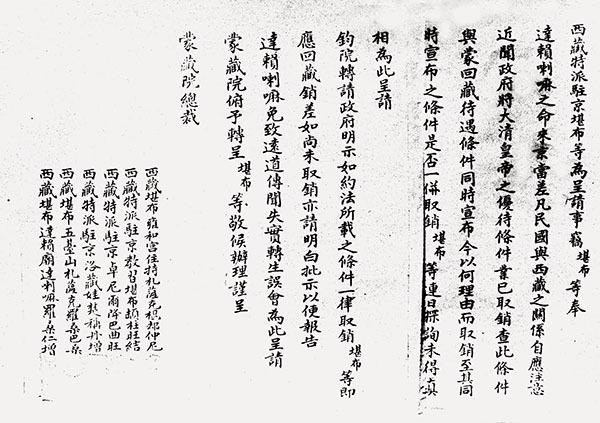 西藏特派駐京堪布等為呈請事竊堪布等奉
達賴喇嘛之命來京當差凡民國與西藏之關係自應注意
近聞政府將大清皇帝之優待條件業已取銷查此條件
與蒙回藏待遇條件同時宣布今以何理由而取銷至其同
時宣布之條件是否一併取銷堪布等連日探詢未得真
相為此呈請
鈞院轉請政府明示如約法所載之條件一律取銷堪布等即
應回藏銷差如尚未取銷亦請明白批示以便報告
達賴喇嘛免致遠道傳聞失實轉生誤會為此呈請
蒙藏院俯予轉呈堪布等敬候辦理謹呈
蒙藏院總裁
西藏堪布雍和宮住持札薩克棍却仲尼
西藏特派駐京教習堪布頗柱旺結
西藏特派駐京卓尼爾降巴曲旺
西藏特派駐京洛藏娃楚稱丹增
西藏堪布五臺山札薩克羅桑巴桑
西藏堪布達賴廟達喇嘛羅桑仁增